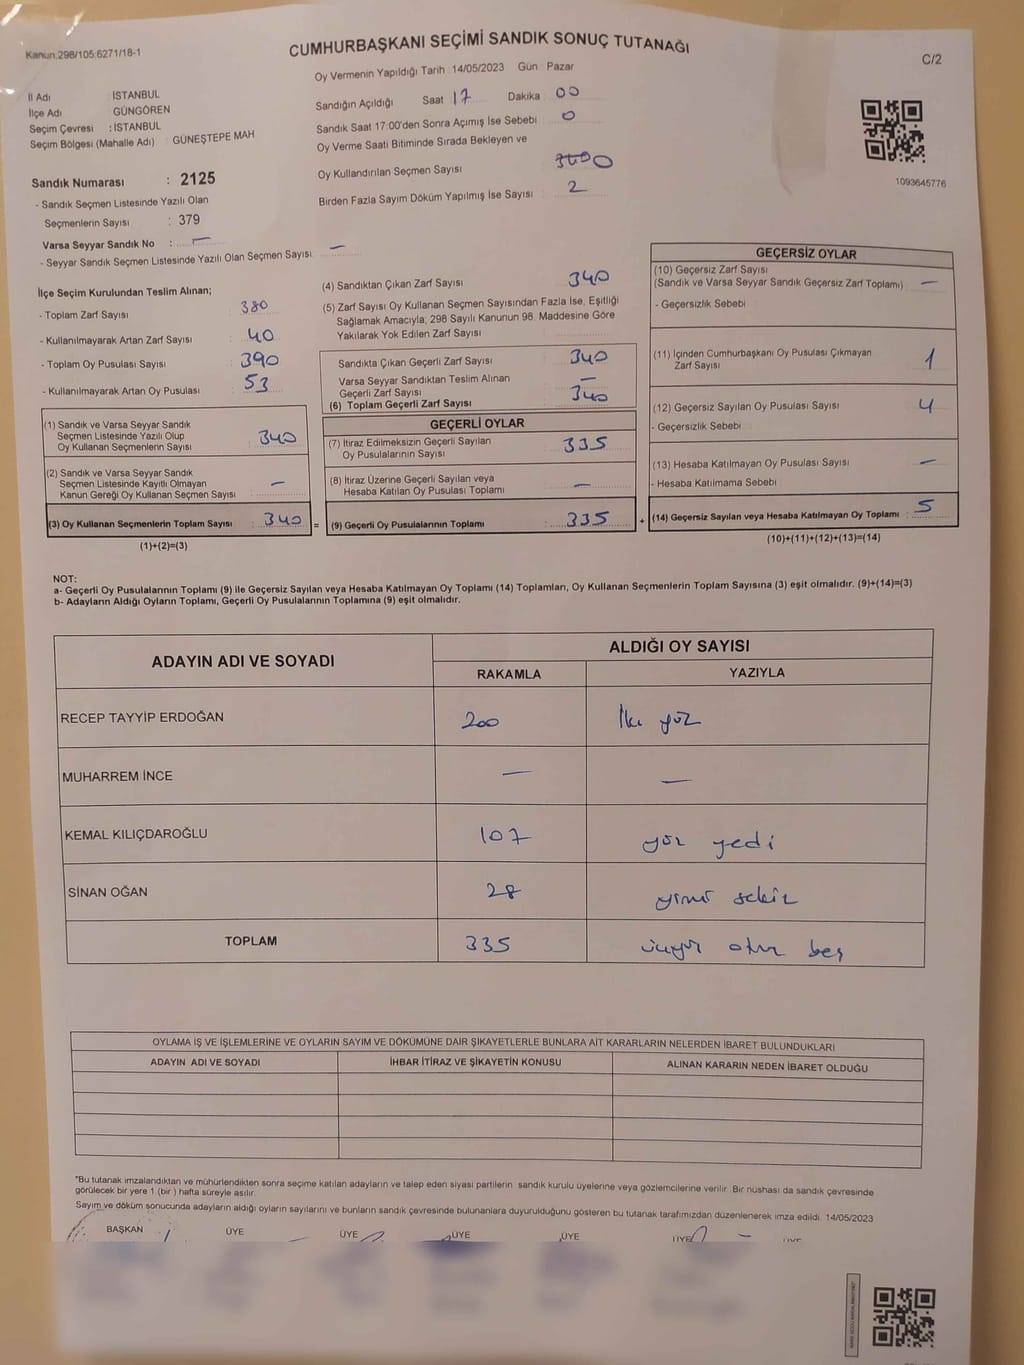 Kanun:298/105;6271/18-1
CUMHURBAŞKANI SEÇİMİ SANDIK SONUÇ TUTANAĞI
C/2
Oy Vermenin Yapıldığı Tarih 14/05/2023 Gün Pazar
İl Adı İSTANBUL
İlçe Adı GÜNGÖREN
Seçim Çevresi : İSTANBUL
Seçim Bölgesi (Mahalle Adı) : GÜNEŞTEPE MAH
Sandık Numarası : 2125
- Sandık Seçmen Listesinde Yazılı Olan
Seçmenlerin Sayısı : 379
Varsa Seyyar Sandık No : —
- Seyyar Sandık Seçmen Listesinde Yazılı Olan Seçmen Sayısı: —
Sandığın Açıldığı Saat 17 Dakika 00
Sandık Saat 17:00'den Sonra Açımış İse Sebebi : 0
Oy Verme Saati Bitiminde Sırada Bekleyen ve
Oy Kullandırılan Seçmen Sayısı
Birden Fazla Sayım Döküm Yapılmış İse Sayısı : 2
1093645776
İlçe Seçim Kurulundan Teslim Alınan;
- Toplam Zarf Sayısı : 380
- Kullanılmayarak Artan Zarf Sayısı : 40
- Toplam Oy Pusulası Sayısı : 390
- Kullanılmayarak Artan Oy Pusulası : 53
(1) Sandık ve Varsa Seyyar Sandık
Seçmen Listesinde Yazılı Olup
Oy Kullanan Seçmenlerin Sayısı : 340
(2) Sandık ve Varsa Seyyar Sandık
Seçmen Listesinde Kayıtlı Olmayan
Kanun Gereği Oy Kullanan Seçmen Sayısı : —
(3) Oy Kullanan Seçmenlerin Toplam Sayısı : 340 =
(1)+(2)=(3)
(4) Sandıktan Çıkan Zarf Sayısı 340
(5) Zarf Sayısı Oy Kullanan Seçmen Sayısından Fazla İse, Eşitliği
Sağlamak Amacıyla; 298 Sayılı Kanunun 98. Maddesine Göre
Yakılarak Yok Edilen Zarf Sayısı
Sandıkta Çıkan Geçerli Zarf Sayısı 340
Varsa Seyyar Sandıktan Teslim Alınan
Geçerli Zarf Sayısı : —
(6) Toplam Geçerli Zarf Sayısı 340
GEÇERLİ OYLAR
(7) İtiraz Edilmeksizin Geçerli Sayılan
Oy Pusulalarının Sayısı : 335
(8) İtiraz Üzerine Geçerli Sayılan veya
Hesaba Katılan Oy Pusulası Toplamı : —
(9) Geçerli Oy Pusulalarının Toplamı : 335 +
GEÇERSİZ OYLAR
(10) Geçersiz Zarf Sayısı
(Sandık ve Varsa Seyyar Sandık Geçersiz Zarf Toplamı) : —
- Geçersizlik Sebebi
(11) İçinden Cumhurbaşkanı Oy Pusulası Çıkmayan
Zarf Sayısı 1
(12) Geçersiz Sayılan Oy Pusulası Sayısı 4
- Geçersizlik Sebebi
(13) Hesaba Katılmayan Oy Pusulası Sayısı —
- Hesaba Katılmama Sebebi
(14) Geçersiz Sayılan veya Hesaba Katılmayan Oy Toplamı : 5
(10)+(11)+(12)+(13)=(14)
NOT:
a- Geçerli Oy Pusulalarının Toplamı (9) ile Geçersiz Sayılan veya Hesaba Katılmayan Oy Toplamı (14) Toplamları, Oy Kullanan Seçmenlerin Toplam Sayısına (3) eşit olmalıdır. (9)+(14)=(3)
b- Adayların Aldığı Oyların Toplamı, Geçerli Oy Pusulalarının Toplamına (9) eşit olmalıdır.
ADAYIN ADI VE SOYADI ALDIĞI OY SAYISI
RAKAMLA YAZIYLA
RECEP TAYYİP ERDOĞAN 200 İki yüz
MUHARREM İNCE — —
KEMAL KILIÇDAROĞLU 107 yüz yedi
SİNAN OĞAN 28 yirmi sekiz
TOPLAM 335 üçyüz otuz beş
OYLAMA İŞ VE İŞLEMLERİNE VE OYLARIN SAYIM VE DÖKÜMÜNE DAİR ŞİKAYETLERLE BUNLARA AİT KARARLARIN NELERDEN İBARET BULUNDUKLARI
ADAYIN ADI VE SOYADI İHBAR İTİRAZ VE ŞİKAYETİN KONUSU ALINAN KARARIN NEDEN İBARET OLDUĞU
*Bu tutanak imzalandıktan ve mühürlendikten sonra seçime katılan adayların ve talep eden siyasi partilerin sandık kurulu üyelerine veya gözlemcilerine verilir. Bir nüshası da sandık çevresinde
görülecek bir yere 1 (bir ) hafta süreyle asılır.
Sayım ve döküm sonucunda adayların aldığı oyların sayılarını ve bunların sandık çevresinde bulunanlara duyurulduğunu gösteren bu tutanak tarafımızdan düzenlenerek imza edildi. 14/05/2023
BAŞKAN ÜYE ÜYE ÜYE ÜYE ÜYE ÜYE